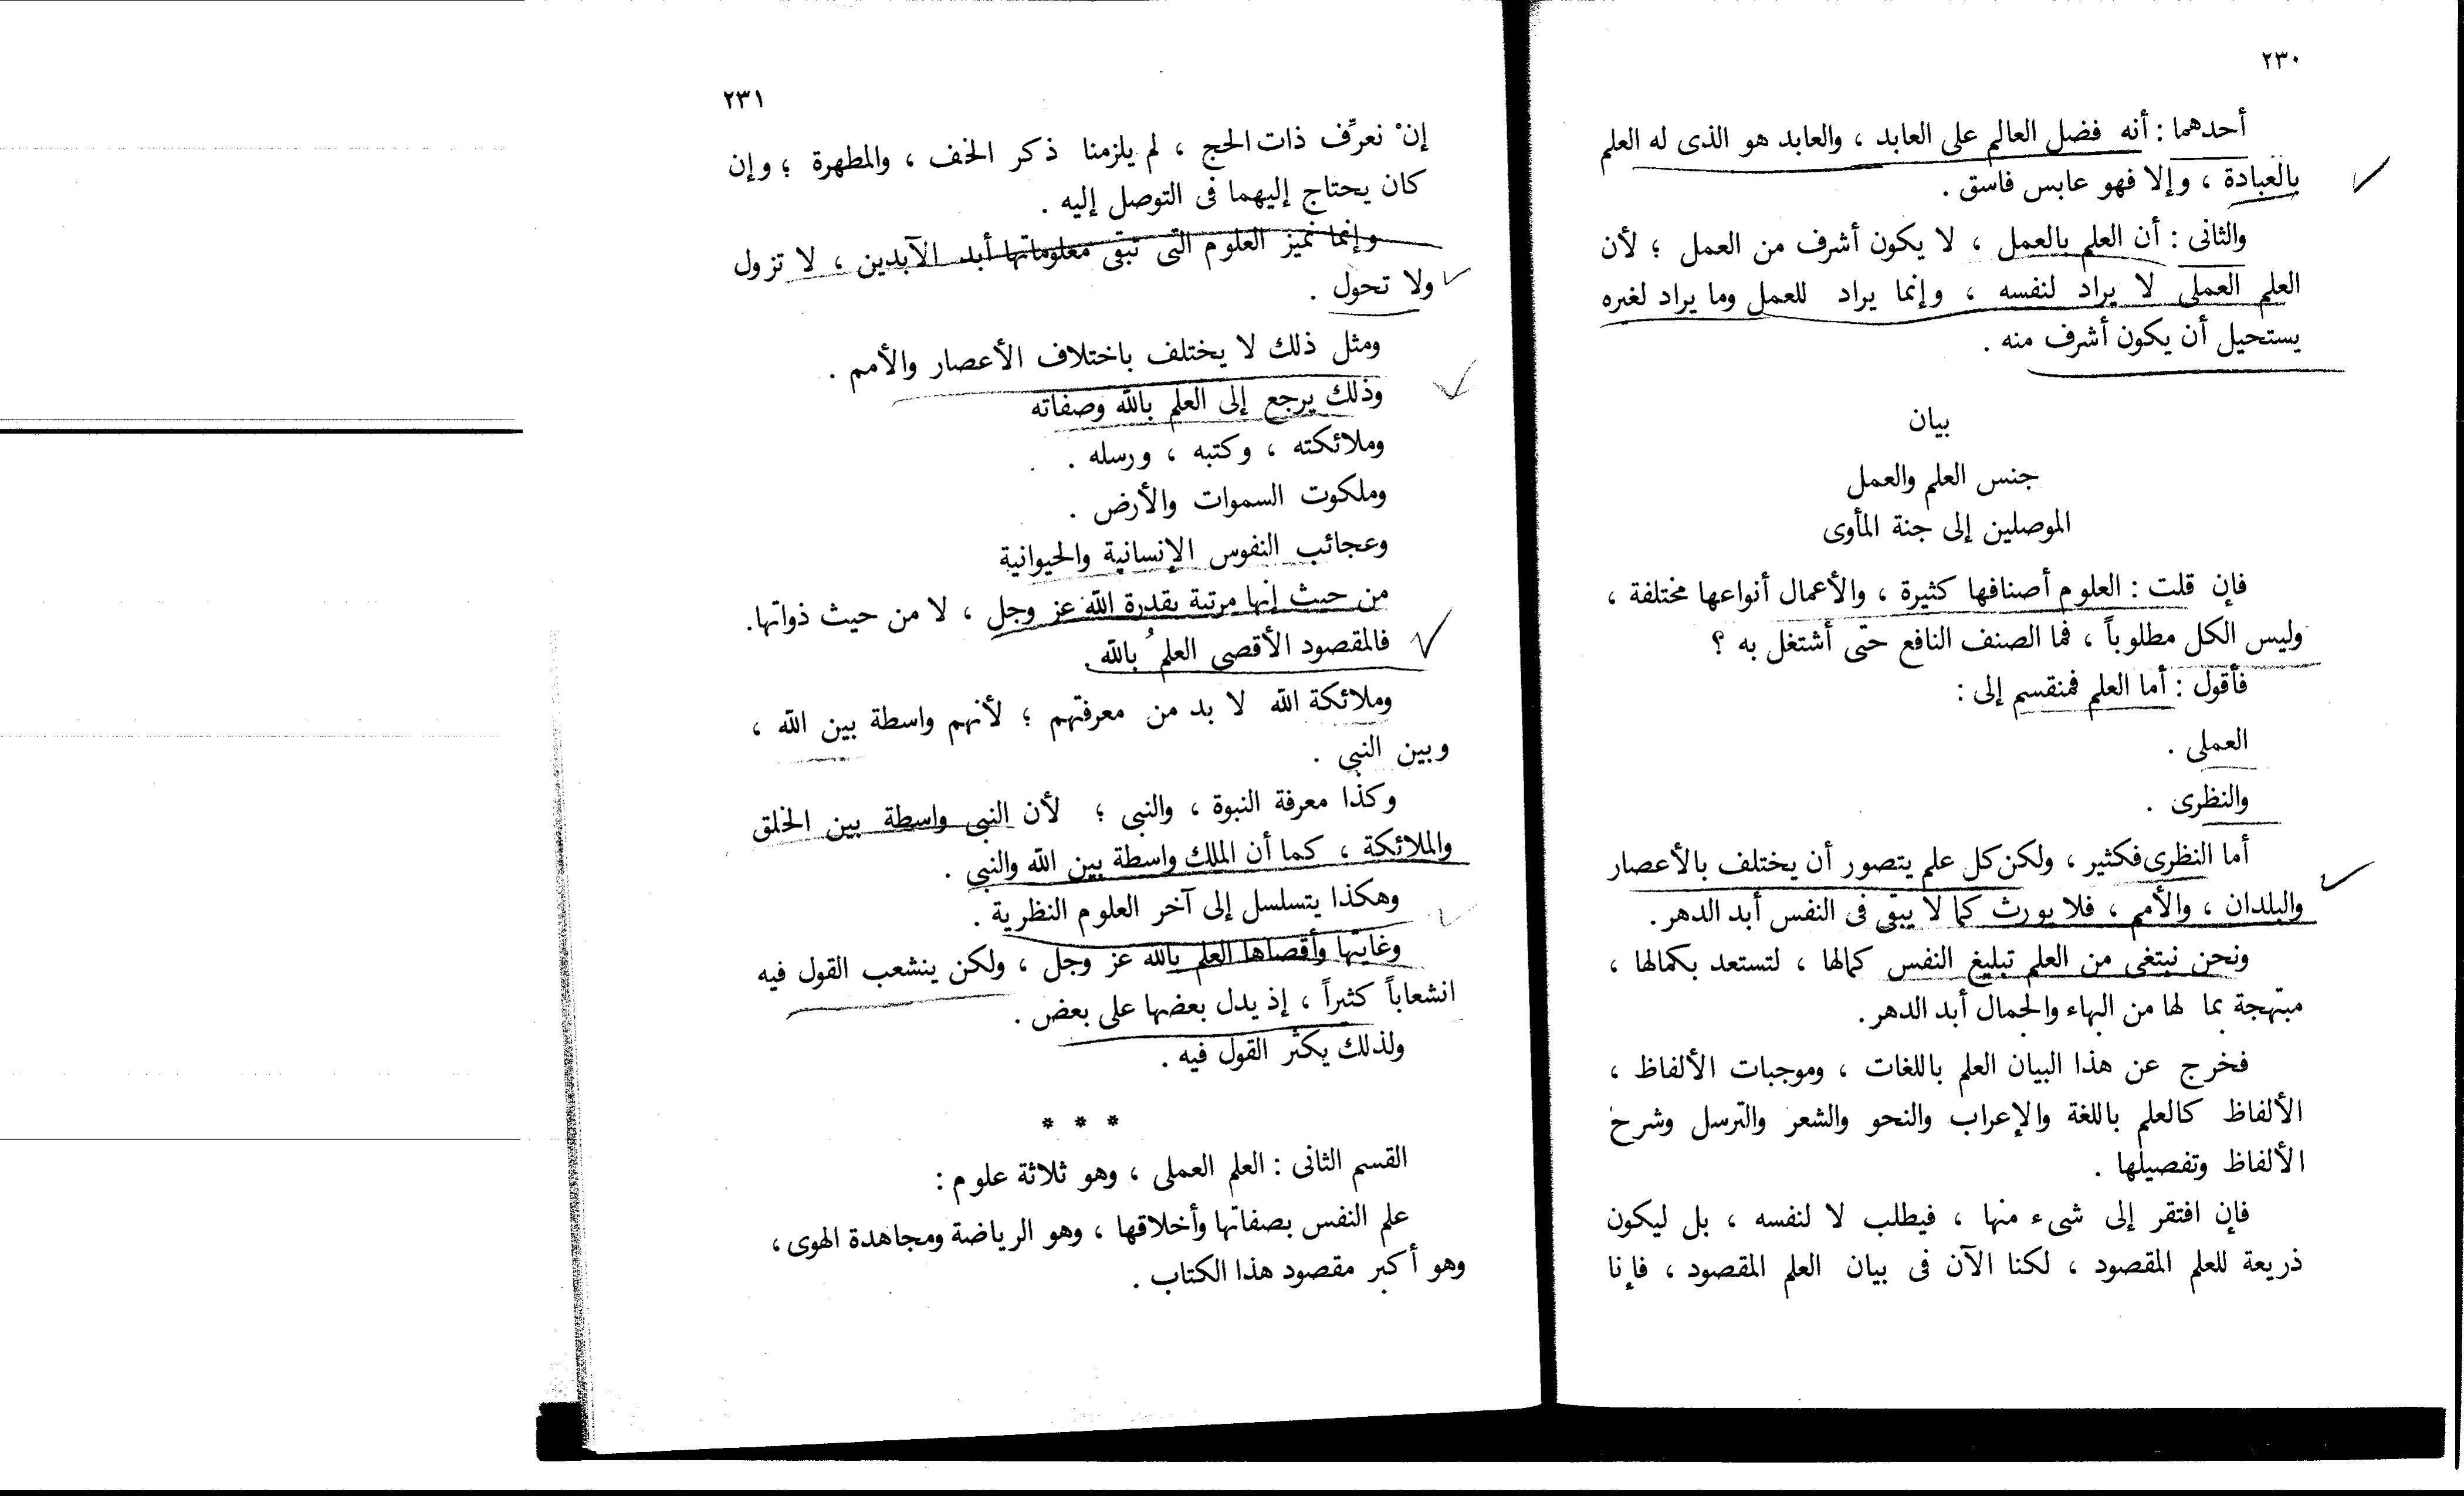 ٢٣٠
أحدهما : أنه فضل العالم على العابد ، والعابد هو الذى له العلم
بالعبادة ، وإلا فهو عابس فاسق .
والثانى : أن العلم بالعمل ، لا يكون أشرف من العمل ؛ لأن
العلم العملى لا يراد لنفسه ، وإنما يراد للعمل وما يراد لغيره
يستحيل أن يكون أشرف منه .
بيان
جنس العلم والعمل
الموصلين إلى جنة المأوى
فإن قلت : العلوم أصنافها كثيرة ، والأعمال أنواعها مختلفة ،
وليس الكل مطلوباً ، فما الصنف النافع حتى أشتغل به ؟
فأقول : أما العلم فمنقسم إلى :
العملى .
والنظرى .
أما النظرى فكثير ، ولكن كل علم يتصور أن يختلف بالأعصار
والبلدان ، والأمم ، فلا يورث كما لا يبقى فى النفس أبد الدهر .
ونحن نبتغى من العلم تبليغ النفس كمالها ، لتستعد بكمالها ،
مبتهجة بما لها من البهاء والجمال أبد الدهر .
فخرج عن هذا البيان العلم باللغات ، وموجبات الألفاظ ،
الألفاظ كالعلم باللغة والإعراب والنحو والشعر والترسل وشرح
الألفاظ وتفصيلها .
فإن افتقر إلى شىء منها ، فيطلب لا لنفسه ، بل ليكون
ذريعة للعلم المقصود ، لكنا الآن فى بيان العلم المقصود ، فإنا
٢٣١
إنْ نعرِّف ذات الحج ، لم يلزمنا ذكر الخف ، والمطهرة ؛ وإن
كان يحتاج إليهما فى التوصل إليه .
وإنما نميز العلوم التى تبقى معلوماتها أبد الآبدين ، لا تزول
ولا تحول .
ومثل ذلك لا يختلف باختلاف الأعصار والأمم .
وذلك يرجع إلى العلم بالله وصفاته
وملائكته ، وكتبه ، ورسله .
وملكوت السموات والأرض .
وعجائب النفوس الإنسانية والحيوانية
من حيث إنها مرتبة بقدرة الله عز وجل ، لا من حيث ذواتها .
فالمقصود الأقصى العلمُ بالله .
وملائكة الله لا بد من معرفتهم ؛ لأنهم واسطة بين الله ،
وبين النبى .
وكذا معرفة النبوة ، والنبى ؛ لأن النبى واسطة بين الخلق
والملائكة ، كما أن الملك واسطة بين الله والنبى .
وهكذا يتسلسل إلى آخر العلوم النظرية .
وغايتها وأقصاها العلم بالله عز وجل ، ولكن ينشعب القول فيه
انشعاباً كثيراً ، إذ يدل بعضها على بعض .
ولذلك يكثر القول فيه .
* * *
القسم الثانى : العلم العملى ، وهو ثلاثة علوم :
علم النفس بصفاتها وأخلاقها ، وهو الرياضة ومجاهدة الهوى ،
وهو أكبر مقصود هذا الكتاب .